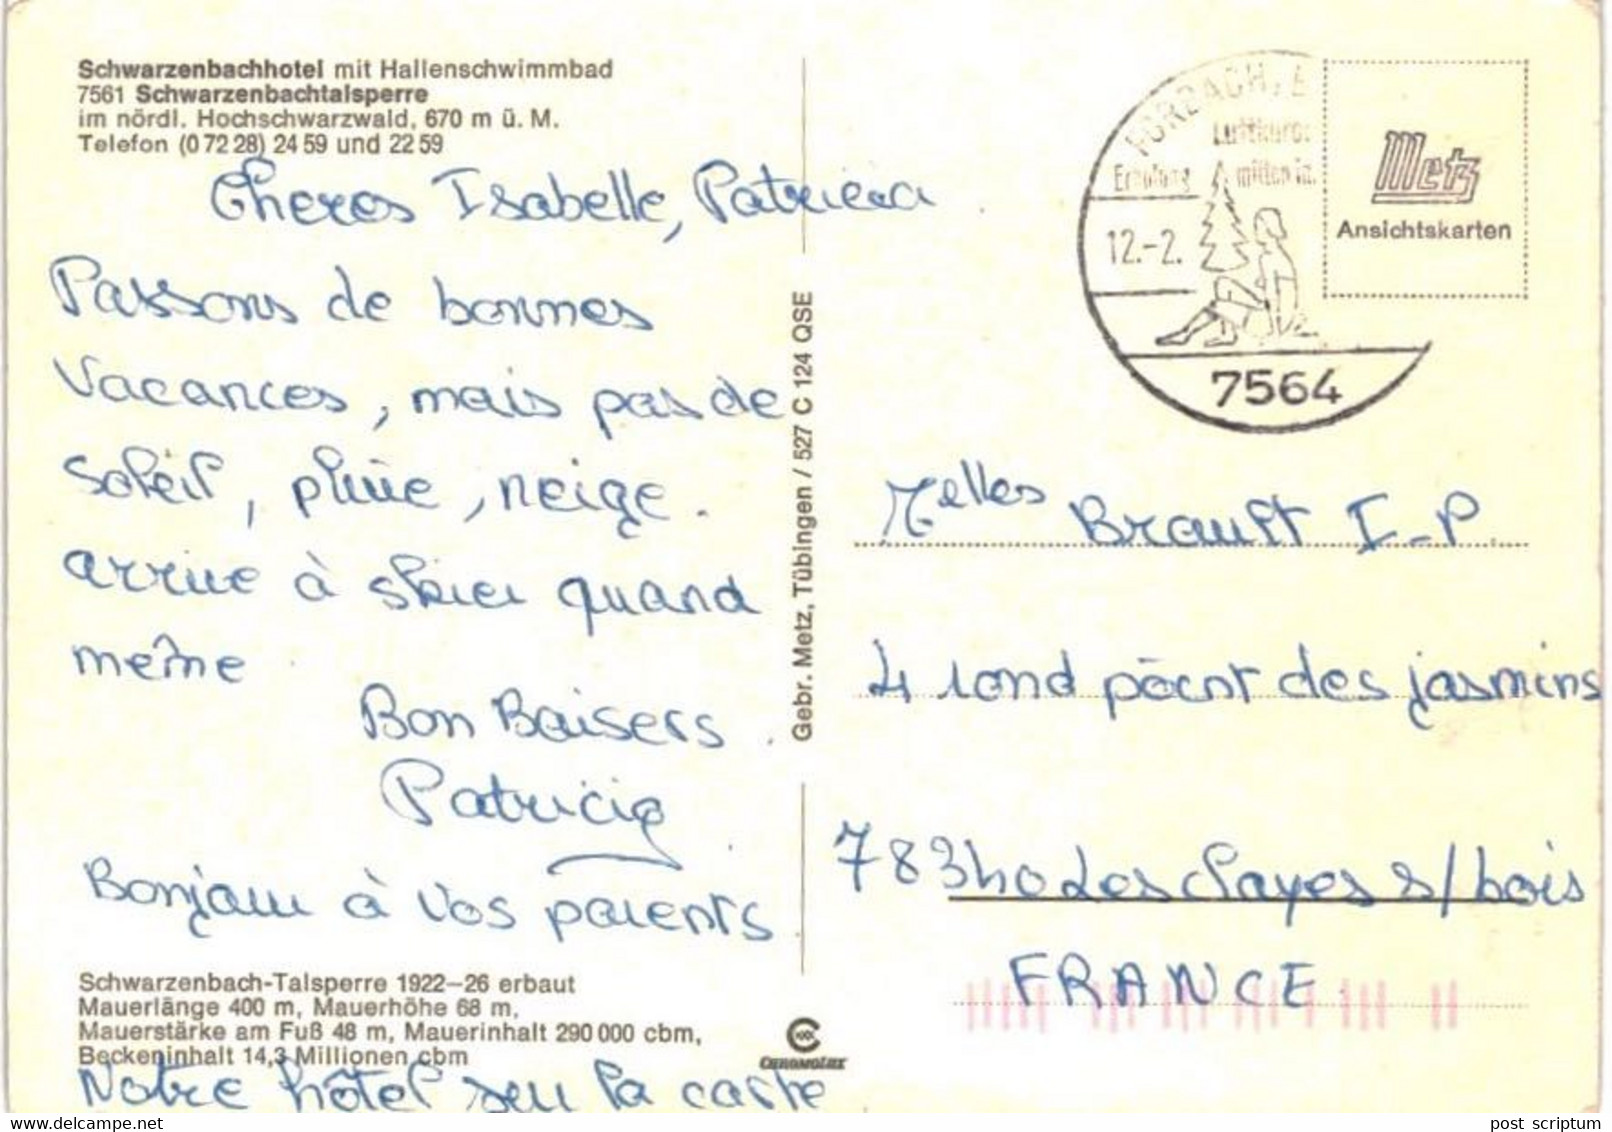 Schwarzenbachhotel mit Hallenschwimmbad
7561 Schwarzenbachtalsperre
im nördl. Hochschwarzwald, 670 m ü. M.
Telefon (0 72 28) 24 59 und 22 59
Cheres Isabelle, Patricia
Passons de bonnes
vacances, mais pas de
soleil, pluie, neige.
arrive à skier quand
même
Bon Baisers.
Patricia
Bonjour à vos parents
Schwarzenbach-Talsperre 1922–26 erbaut
Mauerlänge 400 m, Mauerhöhe 68 m,
Mauerstärke am Fuß 48 m, Mauerinhalt 290 000 cbm,
Beckeninhalt 14,3 Millionen cbm
Notre hôtel sur la carte
Gebr. Metz, Tübingen / 527 C 124 QSE
CHROMOLUX
FORBACH
Luftkuror
Erholung mitten im
12.-2.
7564
Metz
Ansichtskarten
Melles Brault I-P
4 rond point des jasmins
78340 Les Clayes s/bois
FRANCE
www.delcampe.net
post scriptum